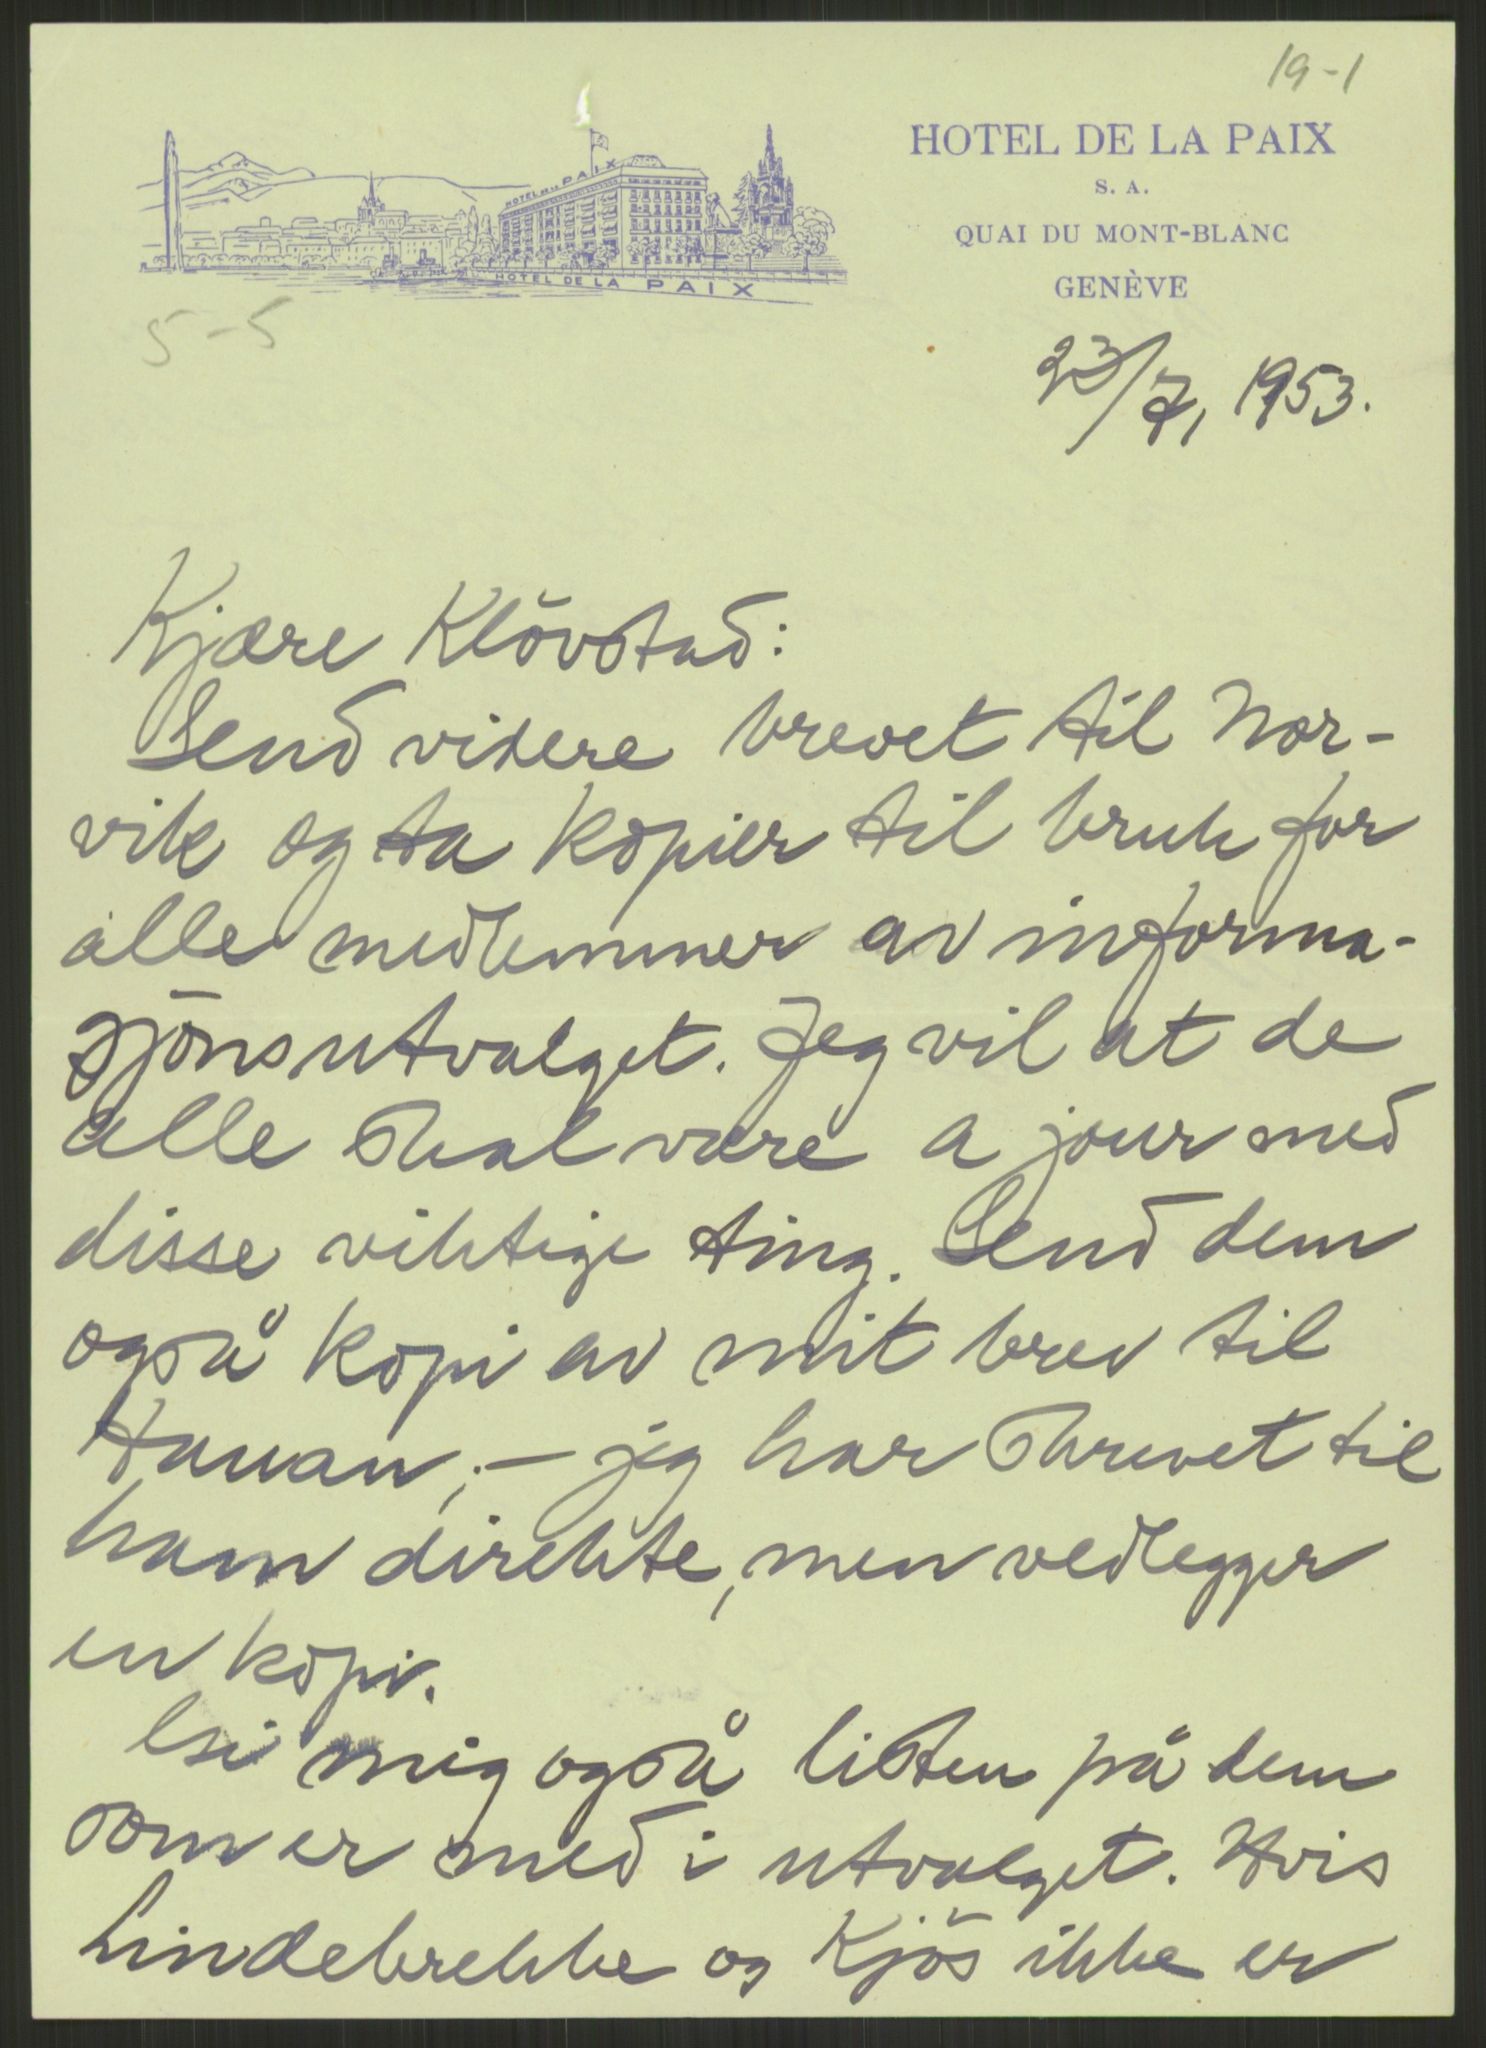 19-1
HOTEL DE LA PAIX
S. A.
QUAI DU MONT-BLANC
GENÈVE
HOTEL DE LA PAIX
HOTEL DE LA PAIX
5-5
23/7, 1953.
Kjære Klövstad:
Send videre brevet til Nor-
vik og ta kopier til bruk for
alle medlemmer av informa-
sjönsutvalget. Jeg vil at de
alle skal være a jour med
disse viktige ting. Send dem
også kopi av mit brev til
Hauan; - jeg har skrevet til
ham direkte, men vedlegger
en kopi.
Gi mig også listen på dem
som er med i utvalget. Hvis
Lindebrekke og Kjös ikke er